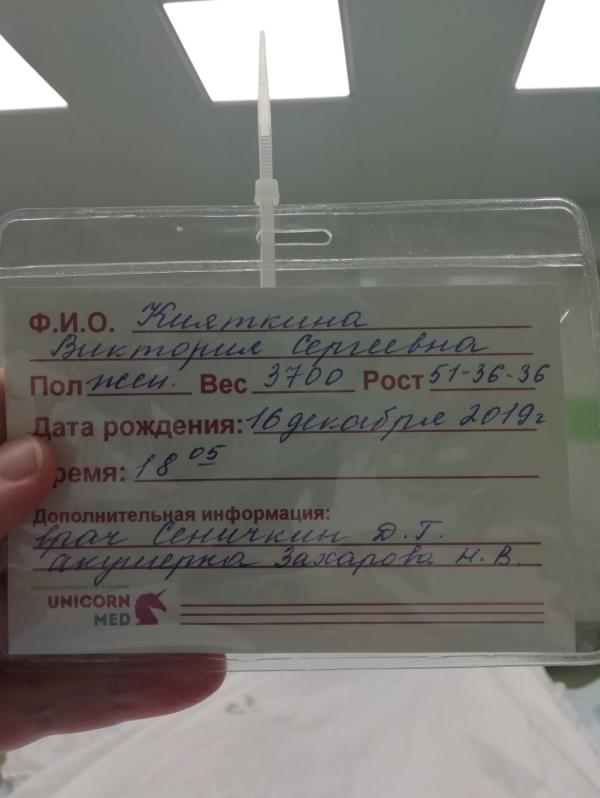 Ф.И.О. Кияткина
Виктория Сергеевна
Пол жен. Вес 3700 Рост 51-36-36
Дата рождения: 16 декабря 2019г
время: 18 05
Дополнительная информация:
врач Сеничкин Д.Г.
акушерка Захарова Н.В.
UNICORN
MED